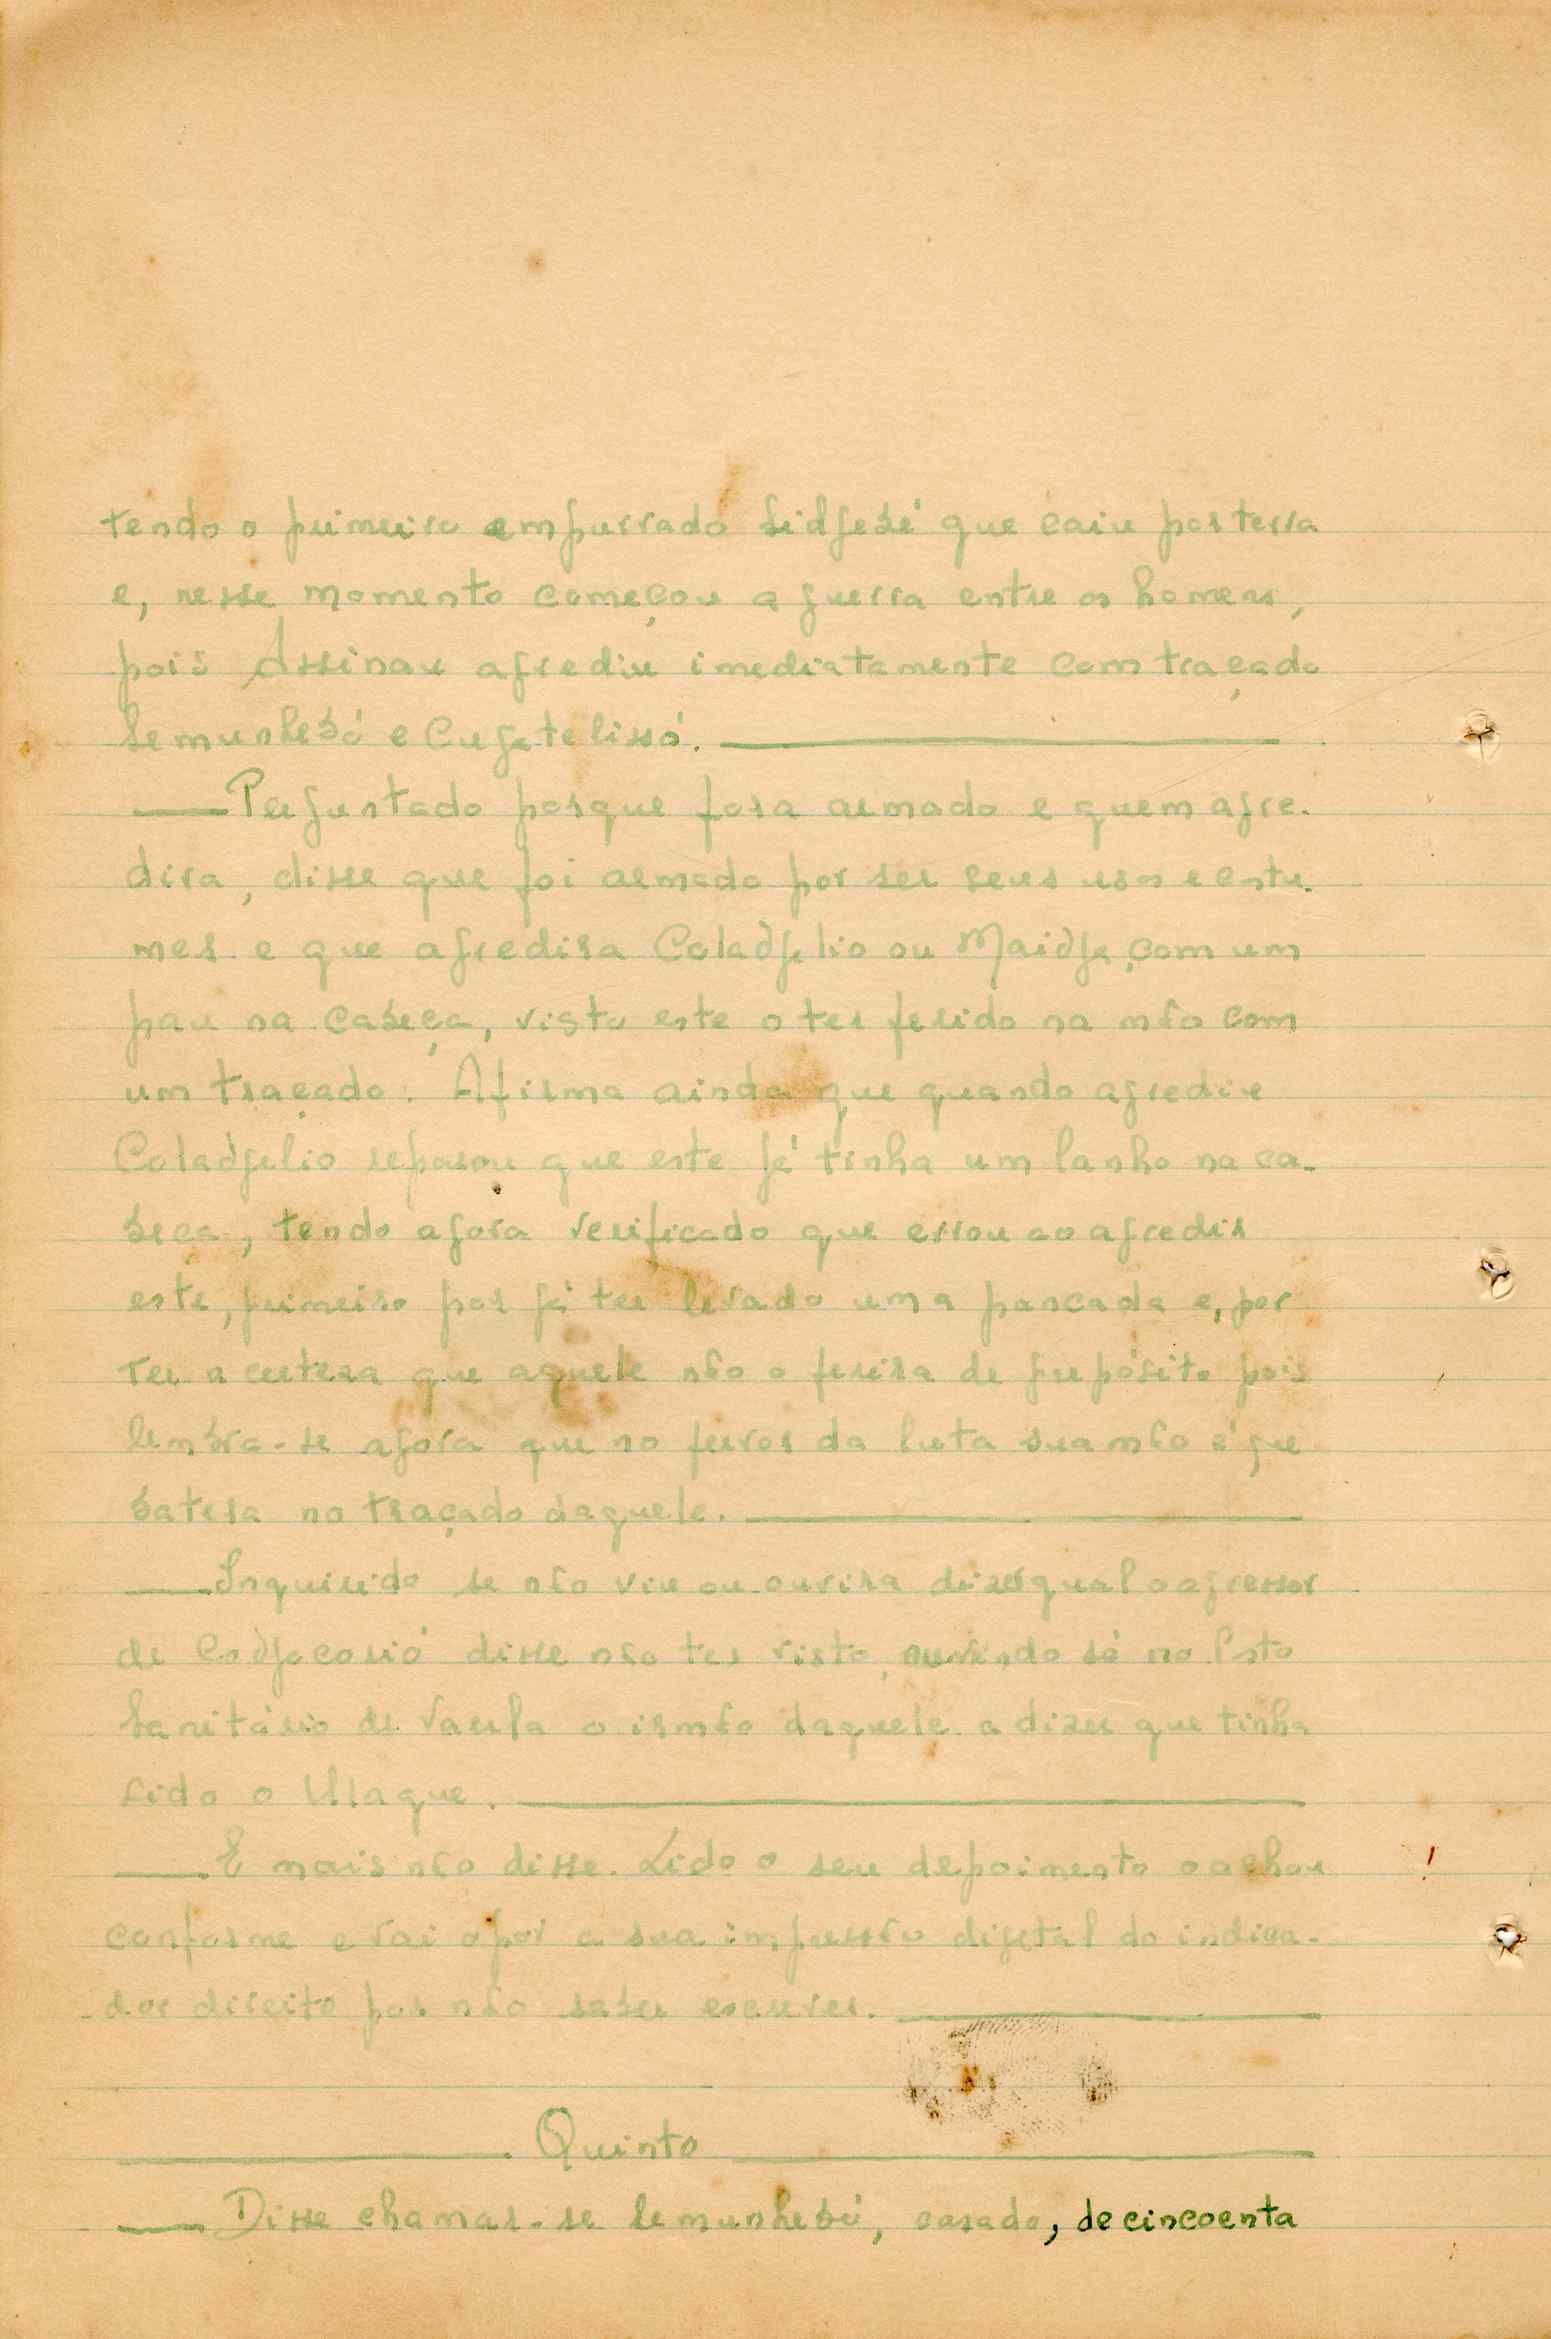 tendo o primeiro empurrado Sidjebé que caiu por terra
e, nesse momento começou a guerra entre os homens,
pois Assinau agrediu imediatamente com traçado
Semunhebó e Cujatelissó.
Perguntado porque fora armado e quem agre-
dira, disse que foi armado por ser seus usos e costu-
mes e que agredira Coladjelio ou Maidja, com um
pau na cabeça, visto este o ter ferido na mão com
um traçado. Afirma ainda que quando agrediu
Coladjelio reparou que este já tinha um lanho na ca-
beça, tendo agora verificado que errou ao agredir
este, primeiro por já ter levado uma pancada e, por
ter a certeza que aquele não o ferira de prupósito pois
lembra-se agora que no fervor da luta sua mão é que
batera no traçado daquele.
Inquirido se não viu ou ouvira dizer qual o agressor
de Codjocorió disse não ter visto, ouvindo só no Posto
Sanitário de Varela o irmão daquele a dizer que tinha
sido o Ulaque.
E mais não disse. Lido o seu depoimento o achou
conforme e vai apôr a sua impressão digital do indica-
dor direito por não saber escrever.
Quinto
Disse chamar-se Semunhebó, casado, de cincoenta